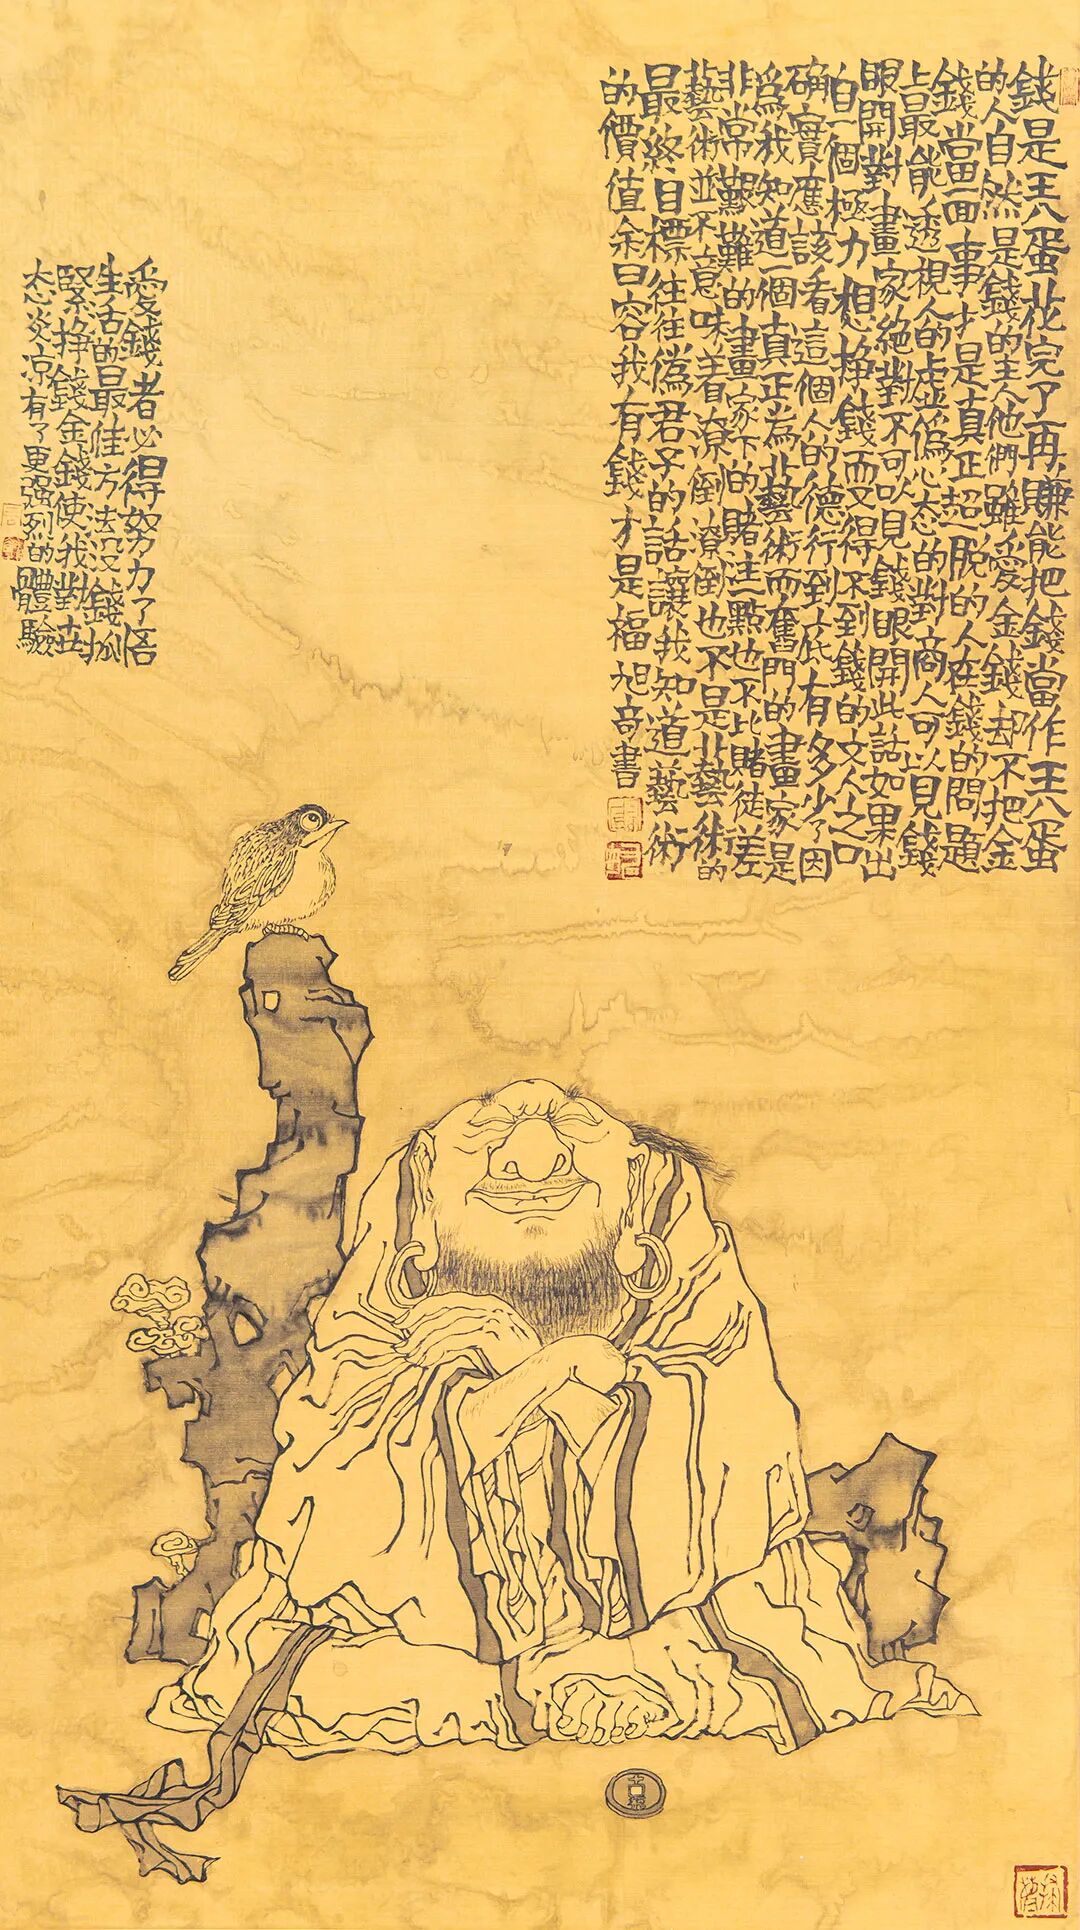 錢是王八蛋花完了再賺能把錢當作王八蛋
的人自然是錢的主人他們雖愛金錢却不把金
錢當一回事才是真正超脱的人在錢的問題
上最能透視人的虛僞心态的對商人可以見錢
眼開對畫家絕對不可以見錢眼開此話如果出
自一個極力想掙錢而又得不到錢的文人之口
确實應該看這個人的德行到底有多少了因
爲我知道一個真正為藝術而奮鬥的畫家是
非常艱難的畫家下的賭注一點也不比賭徒差
藝術並不意味着潦倒潦倒也不是藝術的
最終目標往往僞君子的話讓我知道藝術
的價值余曰容我有錢才是福旭書
愛錢者必得努力了悟
生活的最佳方法没錢抓
緊掙錢金錢使我對世
态炎凉有了更强烈的體驗